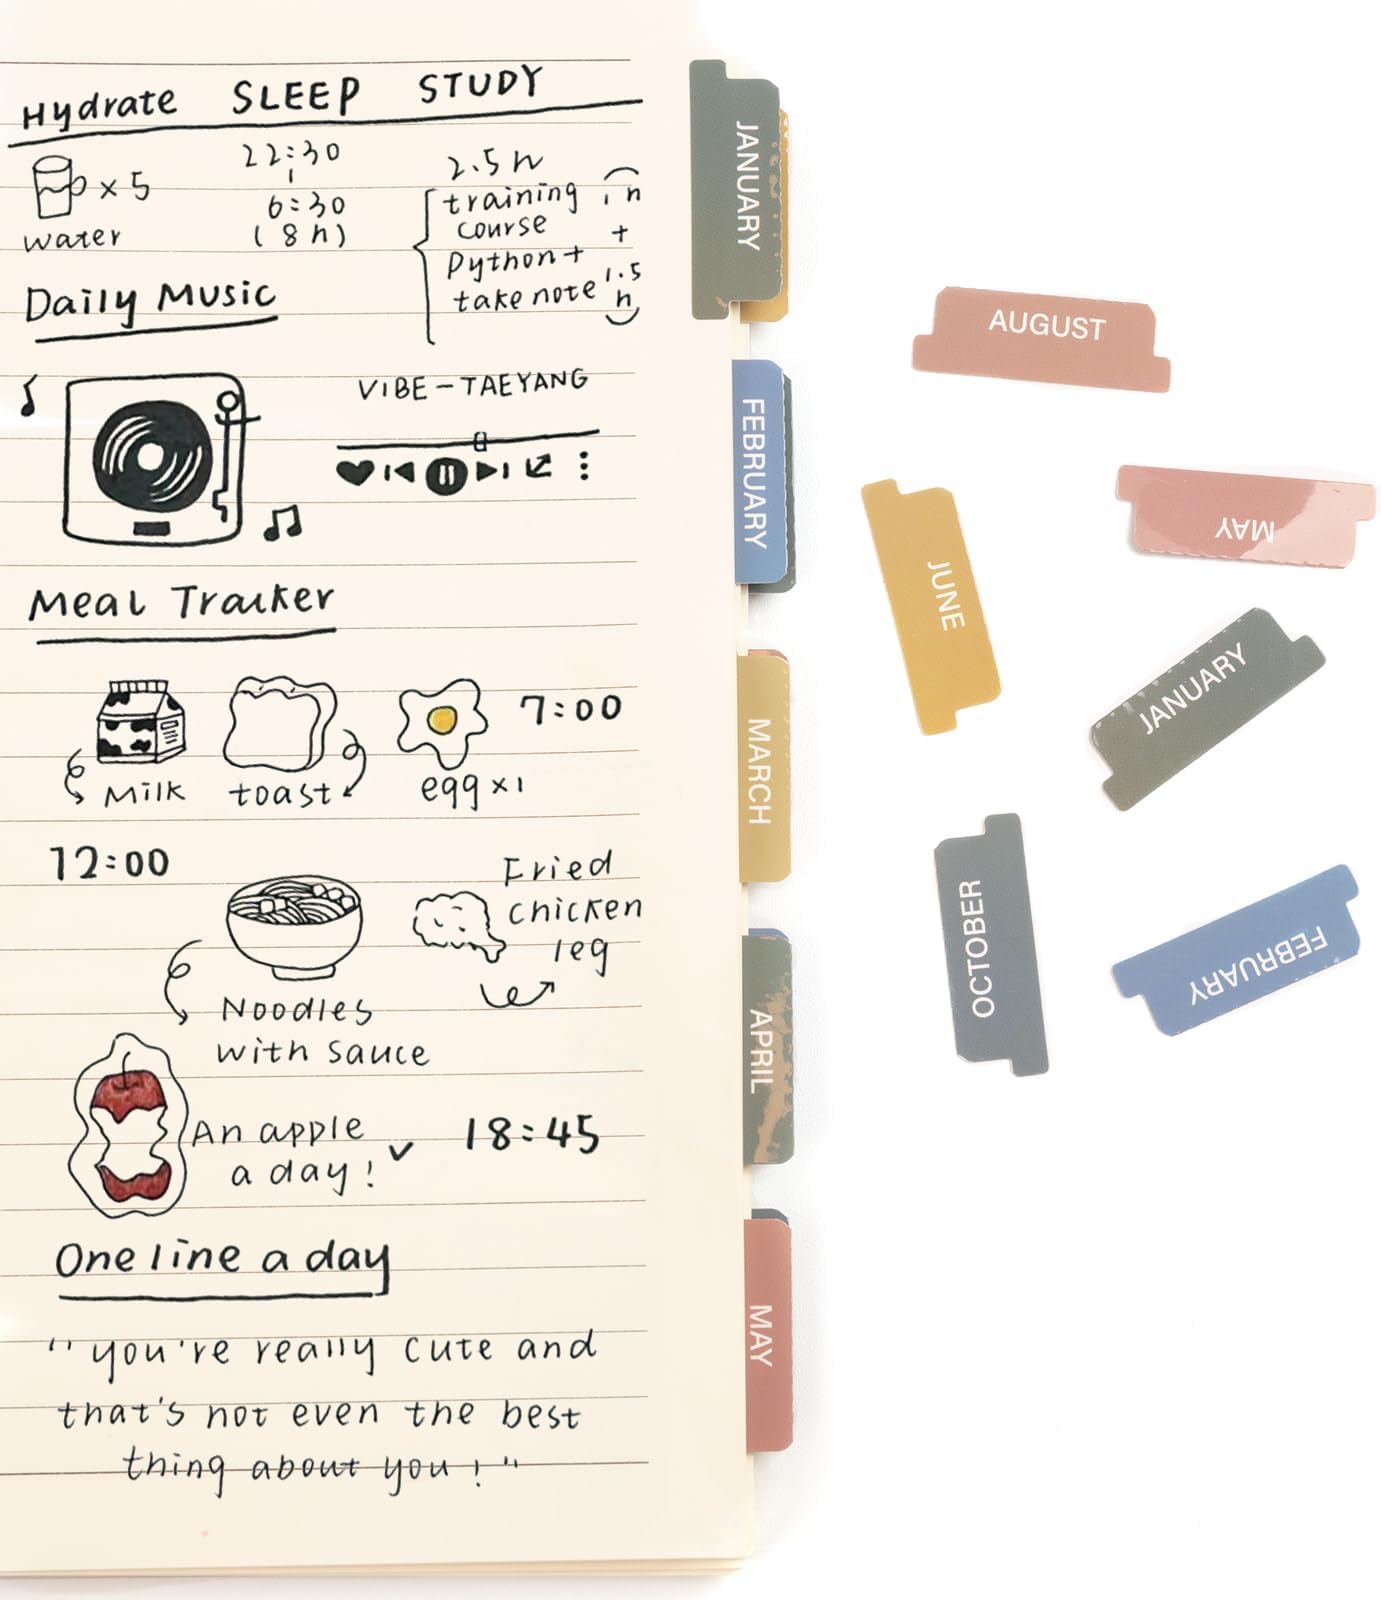 Hydrate SLEEP STUDY
x 5
water
22:30
6:30
(8h)
2.5 h
training
course
Python +
take note
1h
+
1.5
h
Daily Music
VIBE - TAEYANG
Meal Tracker
Milk
toast
egg x1
7:00
12:00
Noodles
with sauce
Fried
chicken
leg
An apple
a day!
18:45
One line a day
"you're really cute and
that's not even the best
thing about you!"
JANUARY
FEBRUARY
MARCH
APRIL
MAY
AUGUST
MAY
JUNE
JANUARY
OCTOBER
FEBRUARY